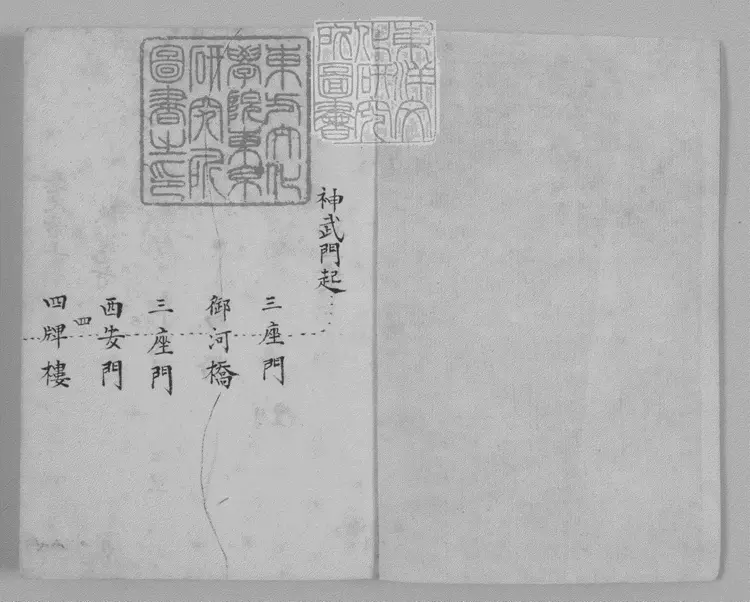 東洋文
化研究
所圖書
東方文化
學院東京
研究所
圖書之印
神武門起
三座門
御河橋
三座門
西安門
四
四牌樓